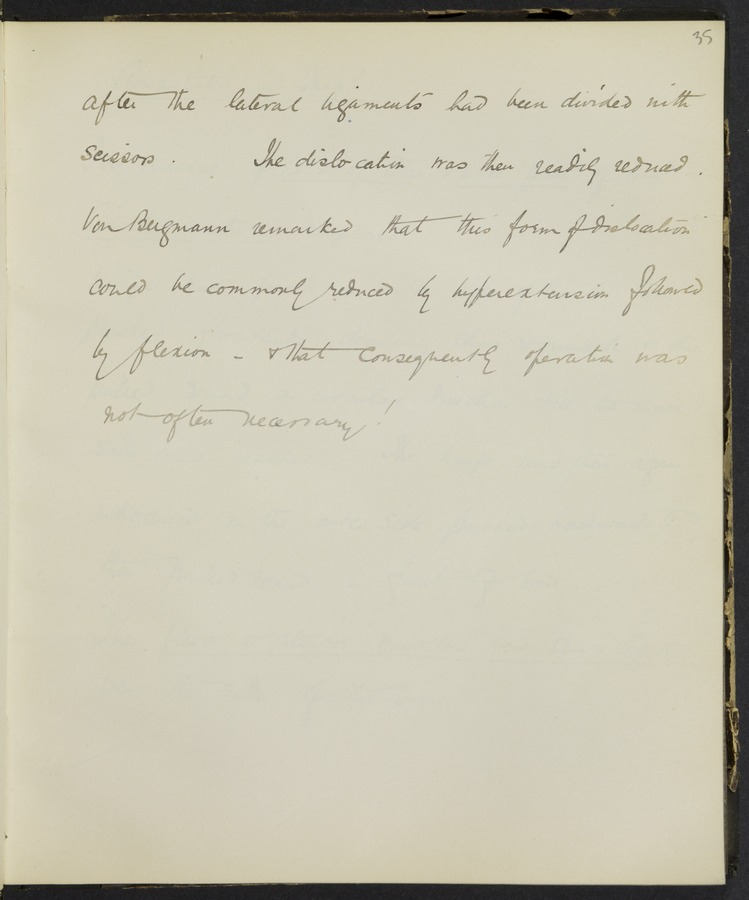 35
after the lateral ligaments had been divided with
scissors . The dislocation was then readily reduced .
Von Bergmann remarked that this form of dislocation
could be commonly reduced by hyperextension followed
by flexion - & that consequently operation was
not often necessary !